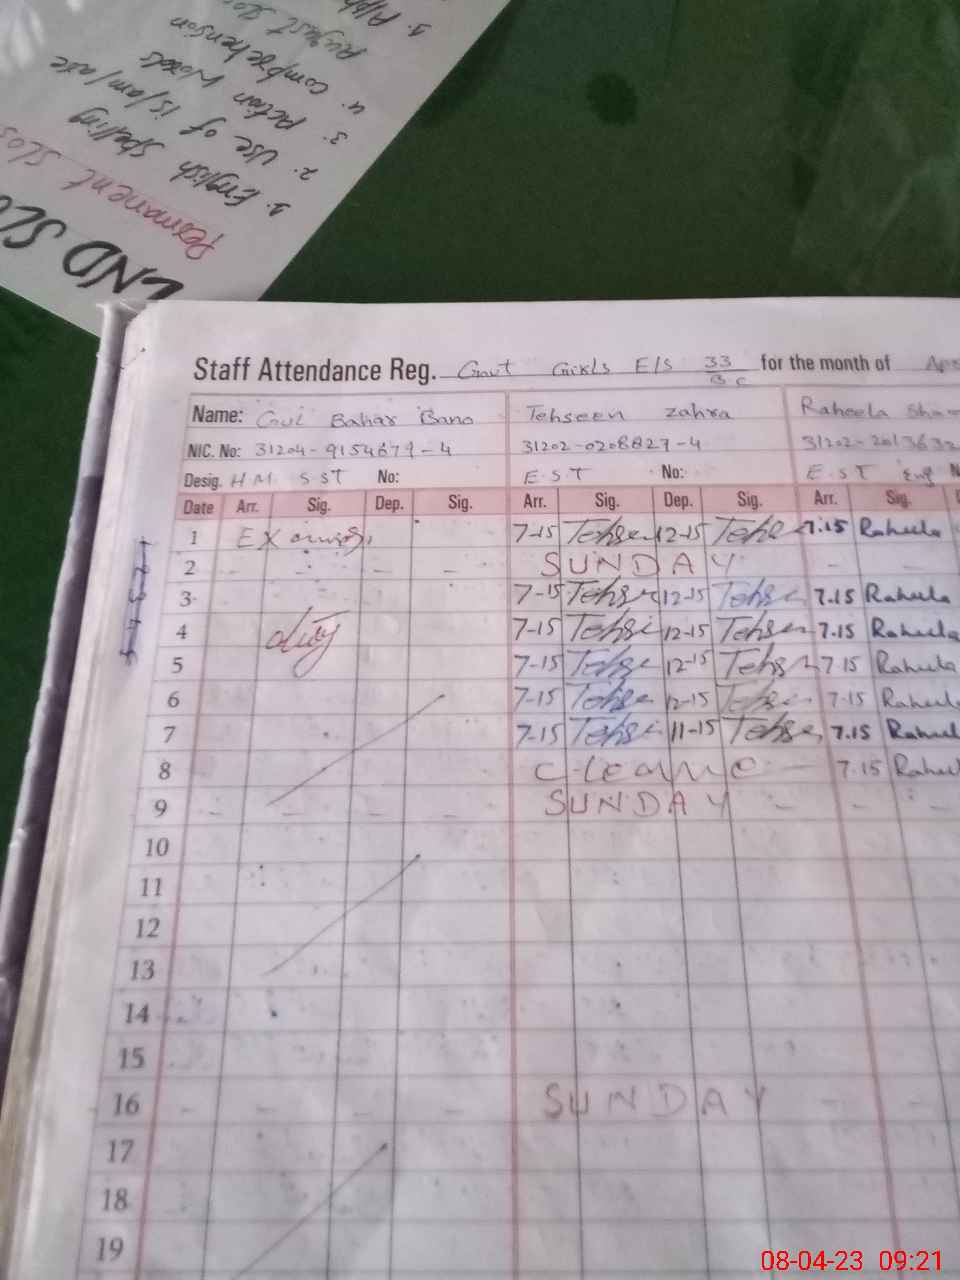 1. App
August Slo
4. comprehension
3. Action Words
2. Use of is/am/are
1. English spelling
Permanent SLOs
LND SLO
Staff Attendance Reg. Govt Girls E/S 33/BC for the month of Apr
Name: Gul Bahar Bano Tehseen zahra Raheela Sha
NIC. No: 31204-9154679-4 31202-0208827-4 31202-2013632
Desig. H.M. SST No: E.S.T No: E.S.T Eng N
Date Arr. Sig. Dep. Sig. Arr. Sig. Dep. Sig. Arr. Sig.
1 Exams, 7-15 Tehse 12-15 Tehse 7.15 Raheela
2 - - - - SUNDAY - -
3 7-15 Tehse 12-15 Tehse 7.15 Raheela
4 duty 7-15 Tehse 12-15 Tehse 7.15 Raheela
5 7-15 Tehse 12-15 Tehse 7.15 Raheela
6 7-15 Tehse 12-15 Tehse 7.15 Raheela
7 7-15 Tehse 11-15 Tehse 7.15 Raheela
8 C-leave - 7.15 Raheel
9 - - - - SUNDAY - - -
10
11
12
13
14
15
16 - - - - SUNDAY - -
17
18
19
08-04-23 09:21